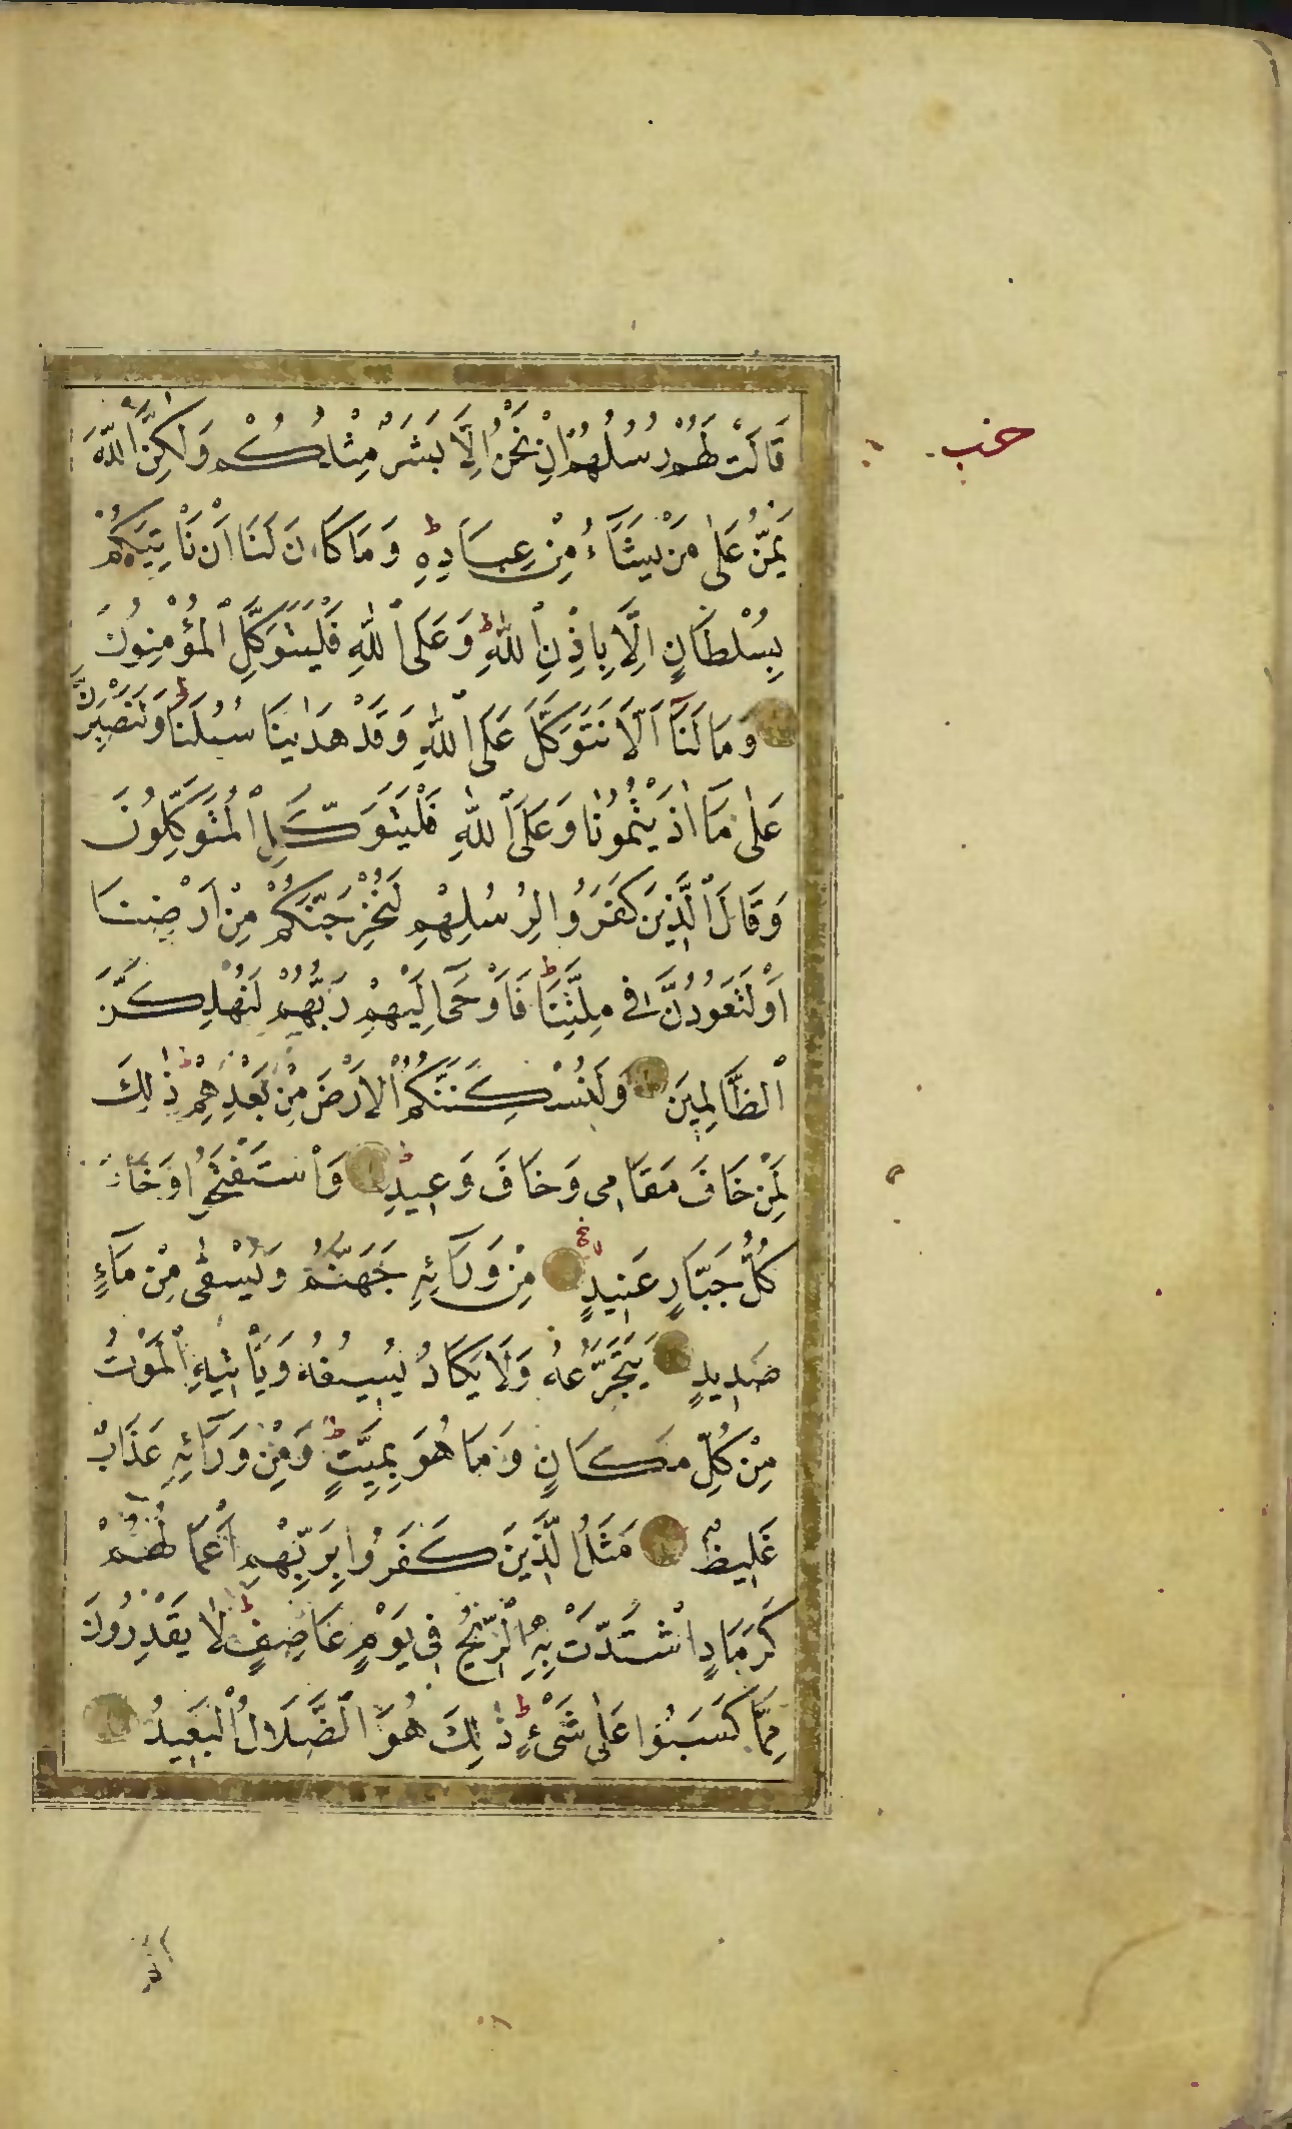 قَالَتْ لَهُمْ رُسُلُهُمْ اِنْ نَحْنُ اِلَّا بَشَرٌ مِثْلُكُمْ وَلٰكِنَّ اللّٰهَ
يَمُنُّ عَلٰى مَنْ يَشَآءُ مِنْ عِبَادِهِ ط وَمَا كَانَ لَنَا اَنْ نَاْتِيَكُمْ
بِسُلْطَانٍ اِلَّا بِاِذْنِ اللّٰهِ ط وَعَلَى اللّٰهِ فَلْيَتَوَكَّلِ الْمُؤْمِنُونَ
وَمَا لَنَآ اَلَّا نَتَوَكَّلَ عَلَى اللّٰهِ وَقَدْ هَدٰينَا سُبُلَنَا ط وَلَنَصْبِرَنَّ
عَلٰى مَآ اٰذَيْتُمُونَا وَعَلَى اللّٰهِ فَلْيَتَوَكَّلِ الْمُتَوَكِّلُونَ
وَقَالَ الَّذِينَ كَفَرُوا لِرُسُلِهِمْ لَنُخْرِجَنَّكُمْ مِنْ اَرْضِنَا
اَوْ لَتَعُودُنَّ فِى مِلَّتِنَا ط فَاَوْحَى اِلَيْهِمْ رَبُّهُمْ لَنُهْلِكَنَّ
الظَّالِمِينَ وَلَنُسْكِنَنَّكُمُ الْاَرْضَ مِنْ بَعْدِهِمْ ط ذٰلِكَ
لِمَنْ خَافَ مَقَامِى وَخَافَ وَعِيدِ وَاسْتَفْتَحُوا وَخَابَ
كُلُّ جَبَّارٍ عَنِيدٍ مِنْ وَرَآئِهِ جَهَنَّمُ وَيُسْقٰى مِنْ مَآءٍ
صَدِيدٍ يَتَجَرَّعُهُ وَلَا يَكَادُ يُسِيغُهُ وَيَاْتِيهِ الْمَوْتُ
مِنْ كُلِّ مَكَانٍ وَمَا هُوَ بِمَيِّتٍ ط وَمِنْ وَرَآئِهِ عَذَابٌ
غَلِيظٌ مَثَلُ الَّذِينَ كَفَرُوا بِرَبِّهِمْ اَعْمَالُهُمْ
كَرَمَادٍ اشْتَدَّتْ بِهِ الرِّيحُ فِى يَوْمٍ عَاصِفٍ ط لَا يَقْدِرُونَ
مِمَّا كَسَبُوا عَلٰى شَىْءٍ ط ذٰلِكَ هُوَ الضَّلَالُ الْبَعِيدُ